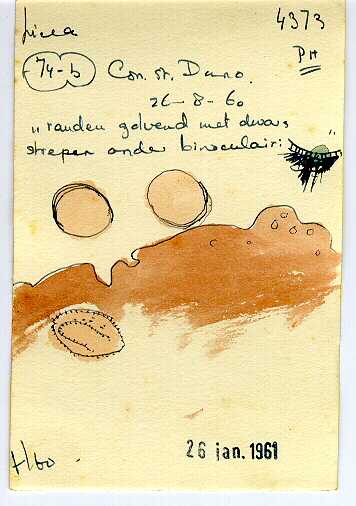 4373
PH
74-b Con. st. Dano.
26-8-60
„randen golvend met dwars
strepen onder binoculair:"
26 jan. 1961